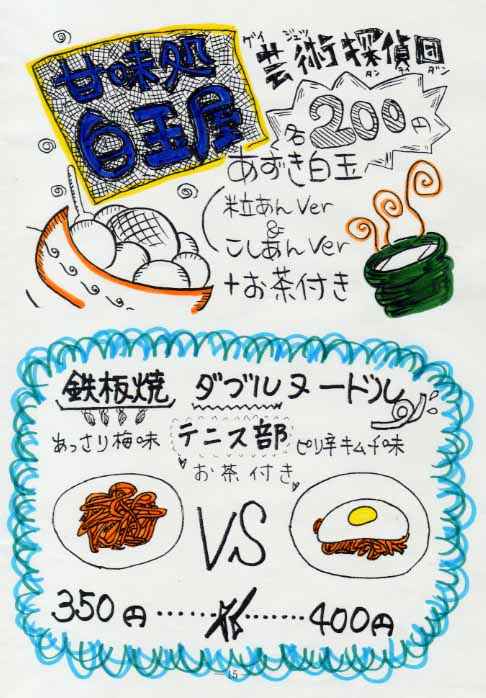 甘味処
白玉屋
ゲイ ジュツ
芸術探偵団
タン テイ ダン
各200円
あずき白玉
粒あんVer
&
こしあんVer
+お茶付き
鉄板焼 ダブルヌードル
あっさり梅味 テニス部 ピリ辛キムチ味
お茶付き
VS
350円……
……400円
15